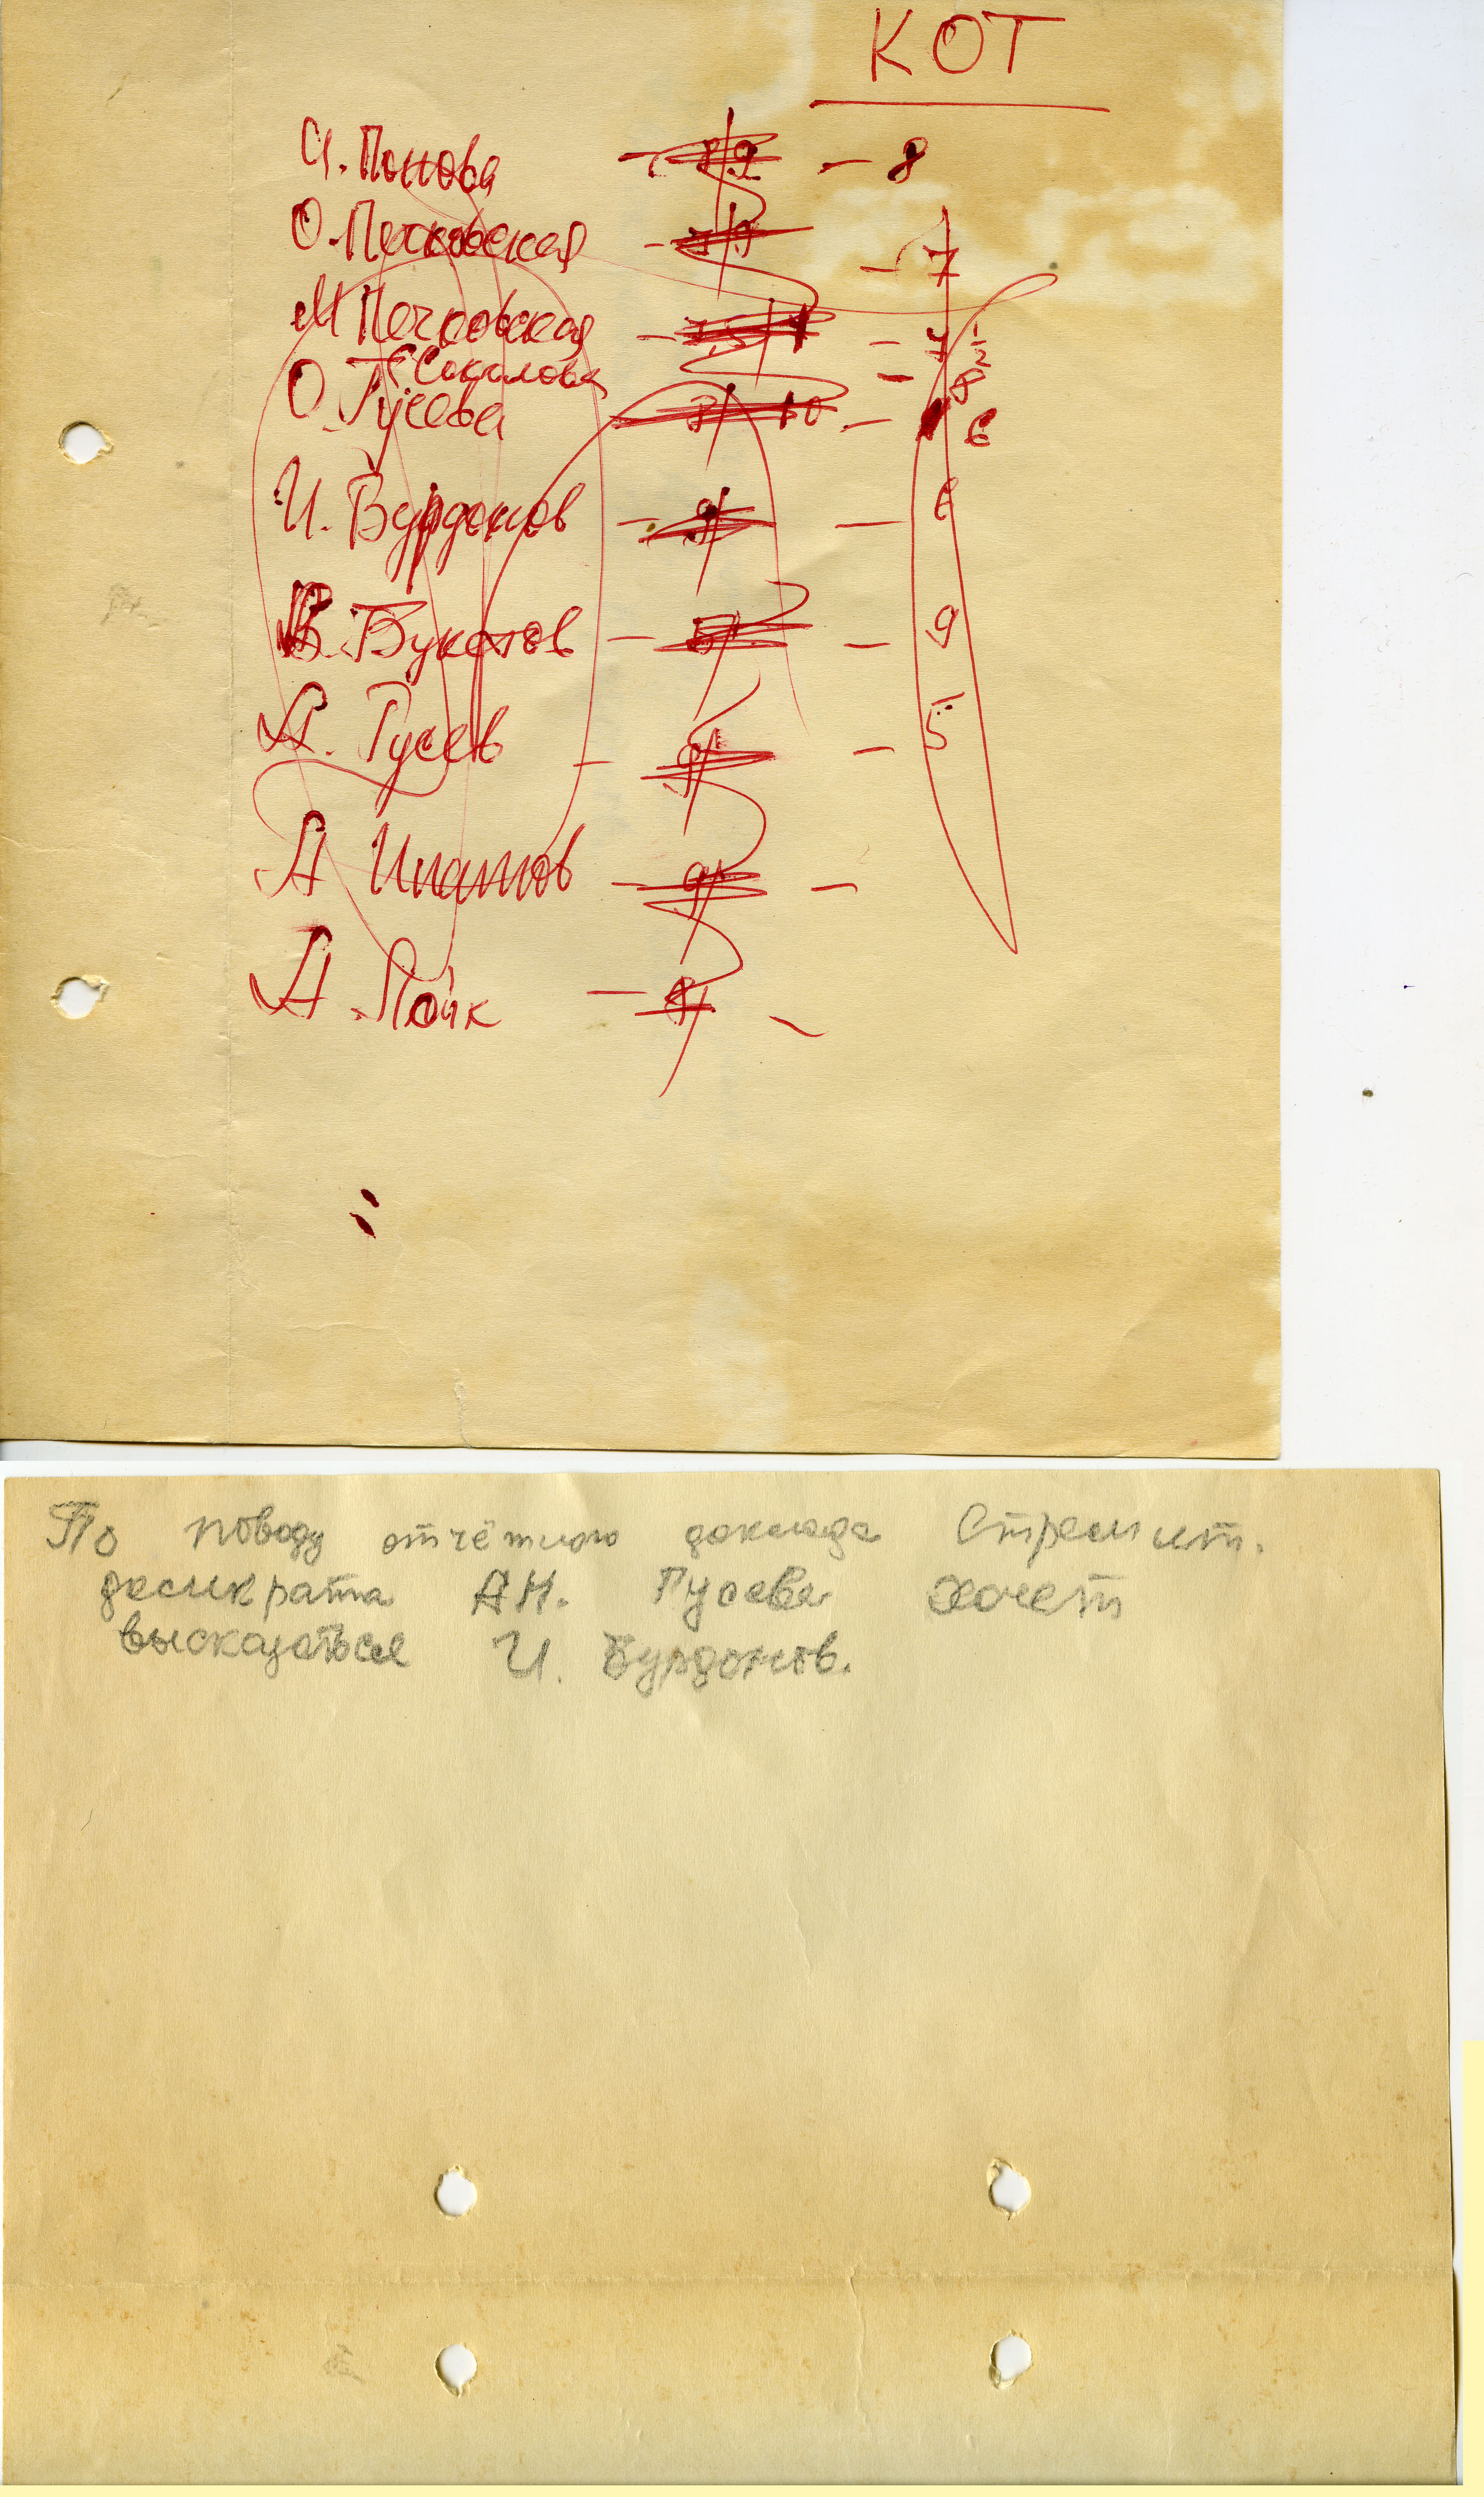 КОТ
И. Попова — 8/9 — 8
О. Печковская — — 7
М Печковская — — 7 1/2
Е Соколова — 8
О. Гусева — 8/10 — 6
И. Бурдонов — 9/ — 6
В. Букатов — 5/ — 9
А. Гусев — 9/ — 5
А Ипатов — 9/ —
А. Лойк — 8/. —
По поводу отчётного доклада Стремит.
демикрата АН. Гусева хочет
высказаться И. Бурдонов.